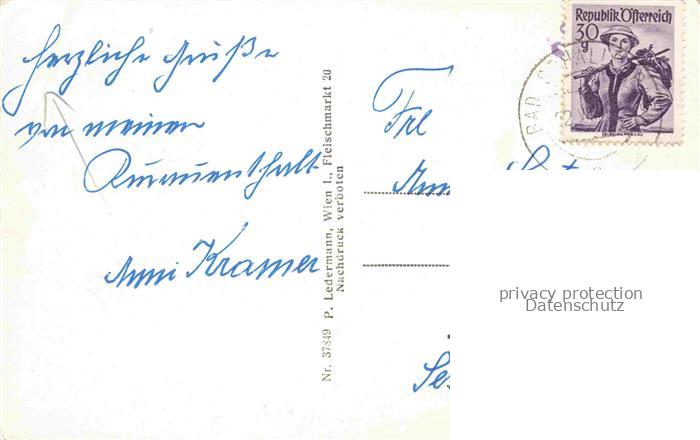 Herzliche Grüße
von meinem
Kuraufenthalt
Anni Kramer
Nr. 37849 P. Ledermann, Wien I., Fleischmarkt 20
Nachdruck verboten
Republik Österreich
30
g
BAD
Frl
privacy protection
Datenschutz